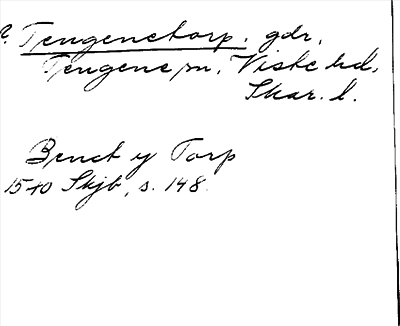 ? Tengenetorp. gdr.
Tengene sn. Viste hd.
Skar. l.
Benct y Torp
1540 Skjb, s. 148.